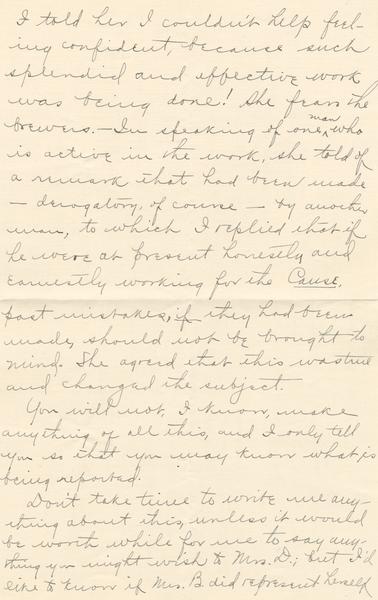 I told her I couldn't help feel-
ing confident, because such
splendid and effective work
was being done! She fears the
brewers. – In speaking of one man who
is active in the work, she told of
a remark that had been made
– derogatory, of course – by another
man, to which I replied that if
he were at present honestly and
earnestly working for the Cause,
past mistakes, if they had been
made, should not be brought to
mind. She agreed that this was true
and changed the subject.
You will not, I know, make
anything of all this, and I only tell
you so that you may know what is
being reported!
Don't take time to write me any-
thing about this, unless it would
be worth while for me to say any-
thing you might wish to Mrs. D.; but I'd
like to know if Mrs. B did represent herself